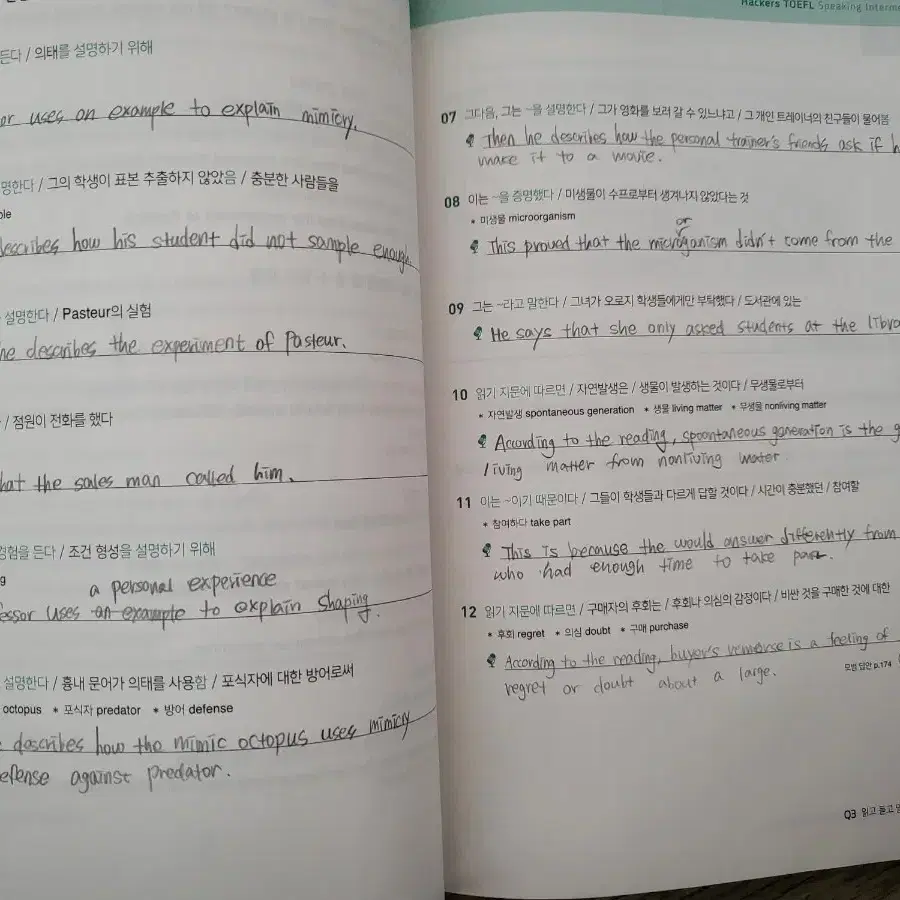 든다 / 의태를 설명하기 위해
or uses an example to explain mimicry.
명한다 / 그의 학생이 표본 추출하지 않았음 / 충분한 사람들을
ple
describes how his student did not sample enough
설명한다 / Pasteur의 실험
he describes the experiment of Pasteur.
/ 점원이 전화를 했다
hat the sales man called him.
경험을 든다 / 조건 형성을 설명하기 위해
g
a personal experience
essor uses an example to explain shaping.
설명한다 / 흉내 문어가 의태를 사용함 / 포식자에 대한 방어로써
octopus * 포식자 predator * 방어 defense
describes how the mimic octopus uses mimicry
efense against predator.
Hackers TOEFL Speaking Interme
07 그다음, 그는 ~을 설명한다 / 그가 영화를 보러 갈 수 있느냐고 / 그 개인 트레이너의 친구들이 물어봄
Then he describes how the personal trainer's friends ask if h
make it to a movie.
08 이는 ~을 증명했다 / 미생물이 수프로부터 생겨나지 않았다는 것
* 미생물 microorganism
or
This proved that the microganism didn't come from the
09 그는 ~라고 말한다 / 그녀가 오로지 학생들에게만 부탁했다 / 도서관에 있는
He says that she only asked students at the libra
10 읽기 지문에 따르면 / 자연발생은 / 생물이 발생하는 것이다 / 무생물로부터
* 자연발생 spontaneous generation * 생물 living matter * 무생물 nonliving matter
According to the reading, spoontaneous generation is the g
living matter from nonliving water.
11 이는 ~이기 때문이다 / 그들이 학생들과 다르게 답할 것이다 / 시간이 충분했던 / 참여할
* 참여하다 take part
This is because the would answer differently from
who had enough time to take part.
12 읽기 지문에 따르면 / 구매자의 후회는 / 후회나 의심의 감정이다 / 비싼 것을 구매한 것에 대한
* 후회 regret * 의심 doubt * 구매 purchase
According to the reading, buyer's remorse is a feeling of
regret or doubt about a large.
모범 답안 p.174
Q3 읽고 듣고 말